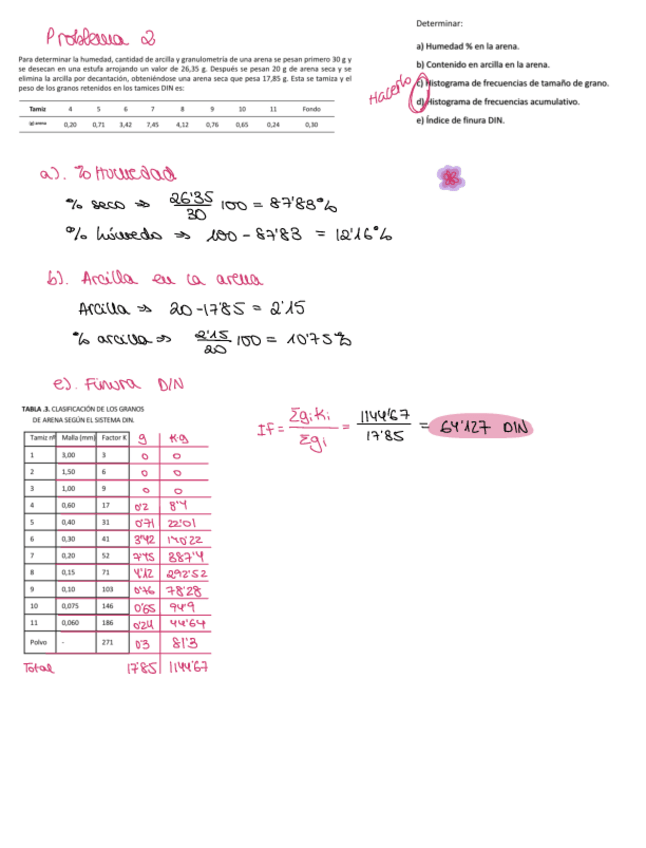 Problema 2
Para determinar la humedad, cantidad de arcilla y granulometría de una arena se pesan primero 30 g y
se desecan en una estufa arrojando un valor de 26,35 g. Después se pesan 20 g de arena seca y se
elimina la arcilla por decantación, obteniéndose una arena seca que pesa 17,85 g. Esta se tamiza y el
peso de los granos retenidos en los tamices DIN es:
Tamiz 4 5 6 7 8 9 10 11 Fondo
(g) arena 0,20 0,71 3,42 7,45 4,12 0,76 0,65 0,24 0,30
Determinar:
a) Humedad % en la arena.
b) Contenido en arcilla en la arena.
Hacerlo
c) Histograma de frecuencias de tamaño de grano.
d) Histograma de frecuencias acumulativo.
e) Índice de finura DIN.
a). % Humedad
% seco ⇒ 26'35/30 100 = 87'83%
% húmedo ⇒ 100 - 87'83 = 12'16%
b). Arcilla en la arena
Arcilla ⇒ 20 - 17'85 = 2'15
% arcilla ⇒ 2'15/20 100 = 10'75%
e). Finura DIN
TABLA .3. CLASIFICACIÓN DE LOS GRANOS
DE ARENA SEGÚN EL SISTEMA DIN.
Tamiz nº Malla (mm) Factor K g K·g
1 3,00 3 0 0
2 1,50 6 0 0
3 1,00 9 0 0
4 0,60 17 0'2 8'4
5 0,40 31 0'71 22'01
6 0,30 41 3'42 140'22
7 0,20 52 7'45 387'4
8 0,15 71 4'12 292'52
9 0,10 103 0'76 78'28
10 0,075 146 0'65 94'9
11 0,060 186 0'24 44'64
Polvo - 271 0'3 81'3
Total 17'85 1144'67
IF = Σgi Ki / Σgi = 1144'67 / 17'85 = 64'127 DIN